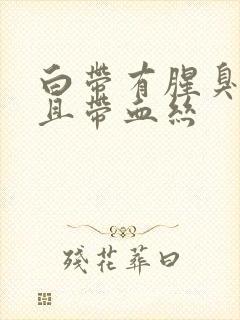 白带有腥臭
且带血丝
残花葬曰